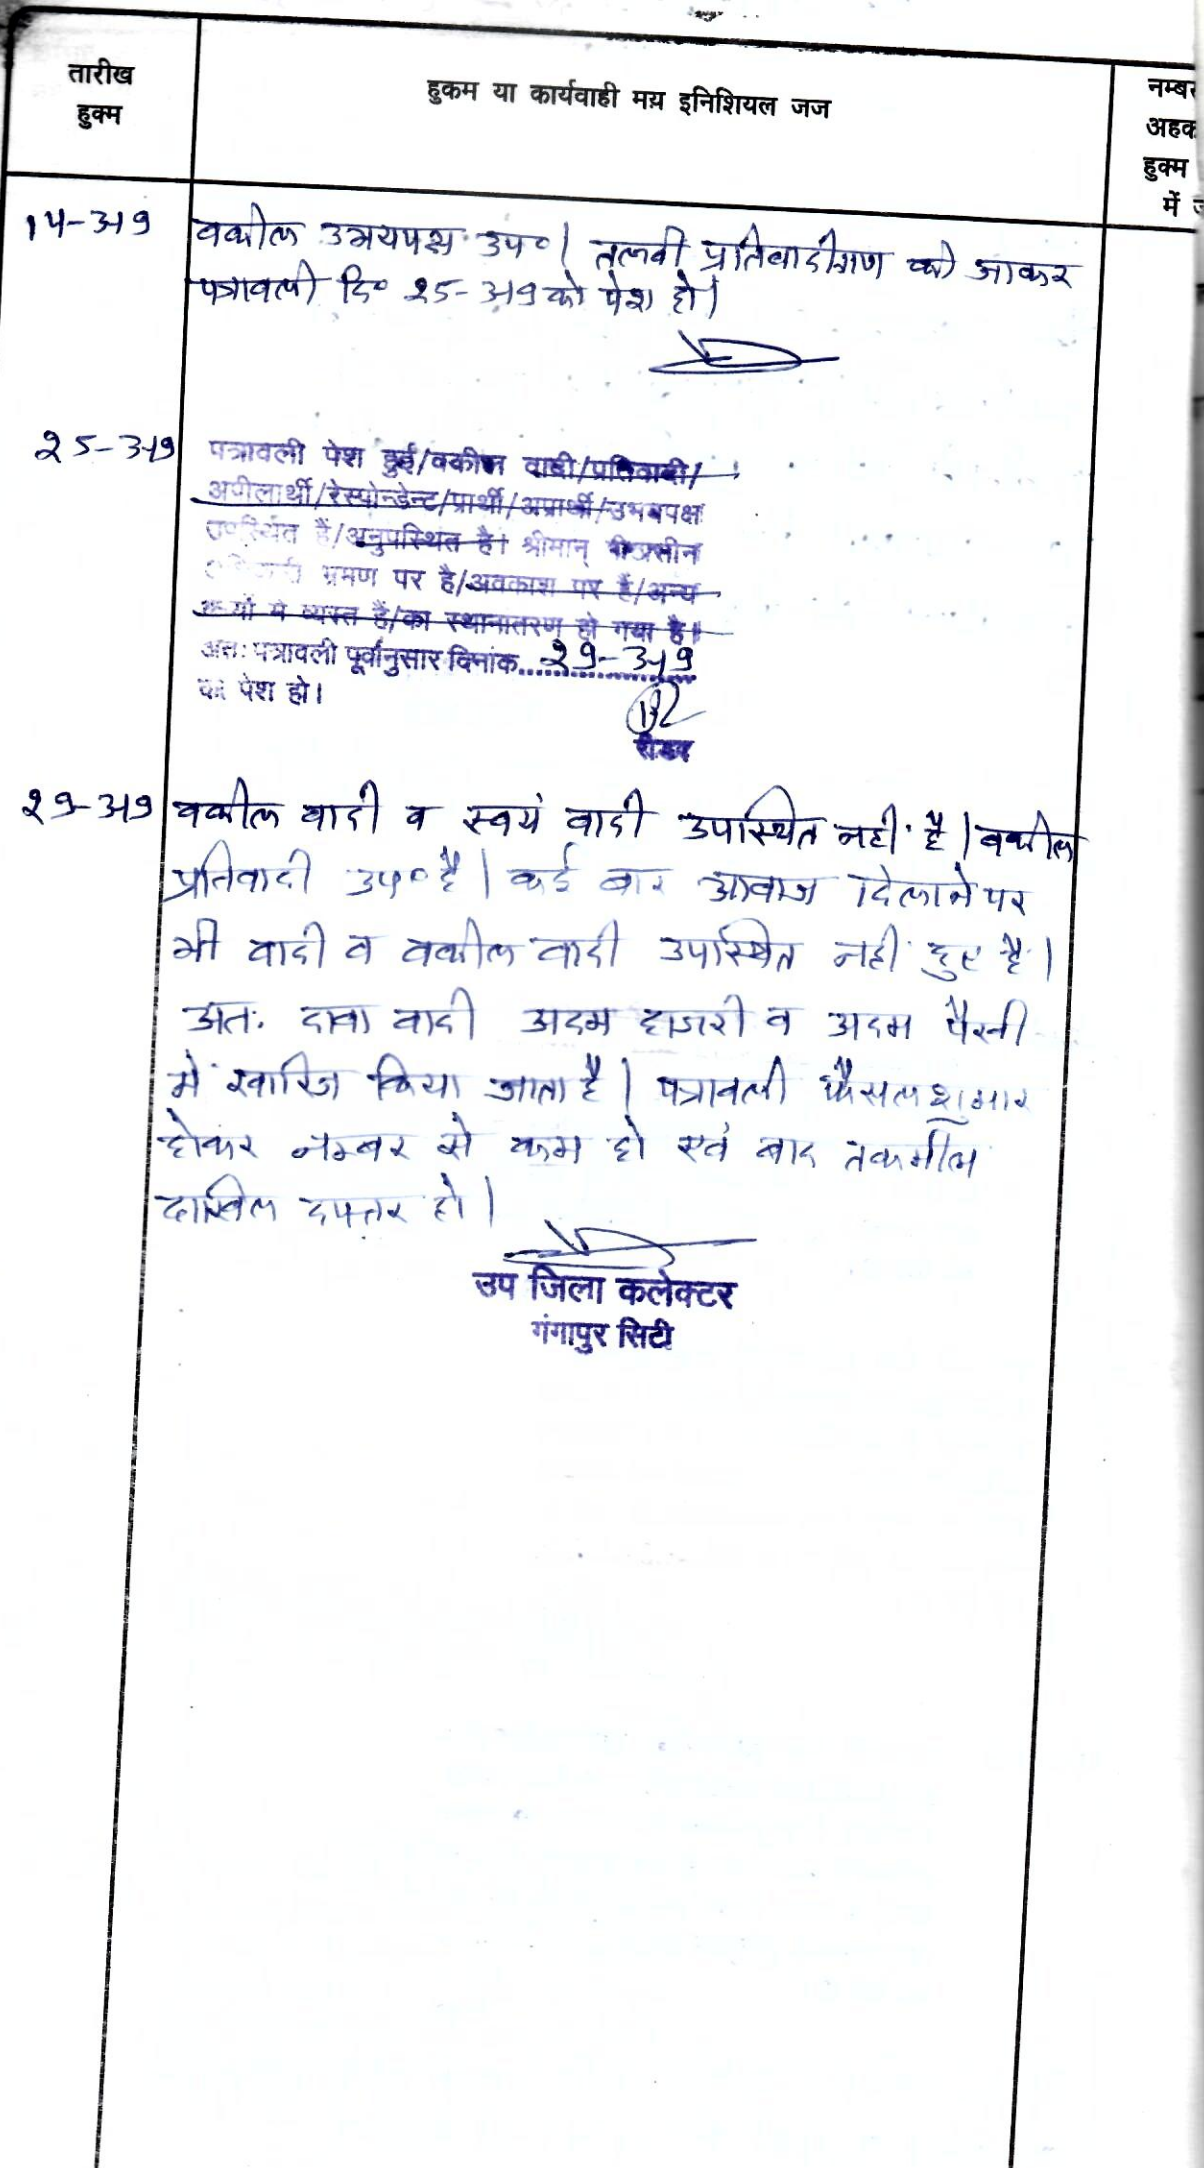 तारीख
हुक्म
हुकम या कार्यवाही मय इनिशियल जज
नम्बर
अहक
हुक्म
में
14-3-19 वकील उभयपक्ष उप० | तलवी प्रतिवादीगण की जाकर
पत्रावली दि० 25-3-19 को पेश हो |
25-3-19 पत्रावली पेश हुई/वकील वादी/प्रतिवादी/
अपीलार्थी/रेस्पोन्डेन्ट/प्रार्थी/अप्रार्थी/उभयपक्ष
उपस्थित हैं/अनुपस्थित है। श्रीमान् पीठासीन
अधिकारी भ्रमण पर है/अवकाश पर हैं/अन्य
कार्यो मे व्यस्त हैं/का स्थानातरण हो गया है।
अतः पत्रावली पूर्वानुसार दिनांक....29-3-19
को पेश हो।
रीडर
29-3-19 वकील वादी व स्वयं वादी उपस्थित नही है | वकील
प्रतिवादी उप० है | कई बार आवाज दिलाने पर
भी वादी व वकील वादी उपस्थित नही हुए है |
अतः दावा वादी अदम हाजरी व अदम पैरवी
मे खारिज किया जाता है | पत्रावली फैसल शुमार
होकर नम्बर से कम हो एवं बाद तकमील
दाखिल दफ्तर हो |
उप जिला कलेक्टर
गंगापुर सिटी